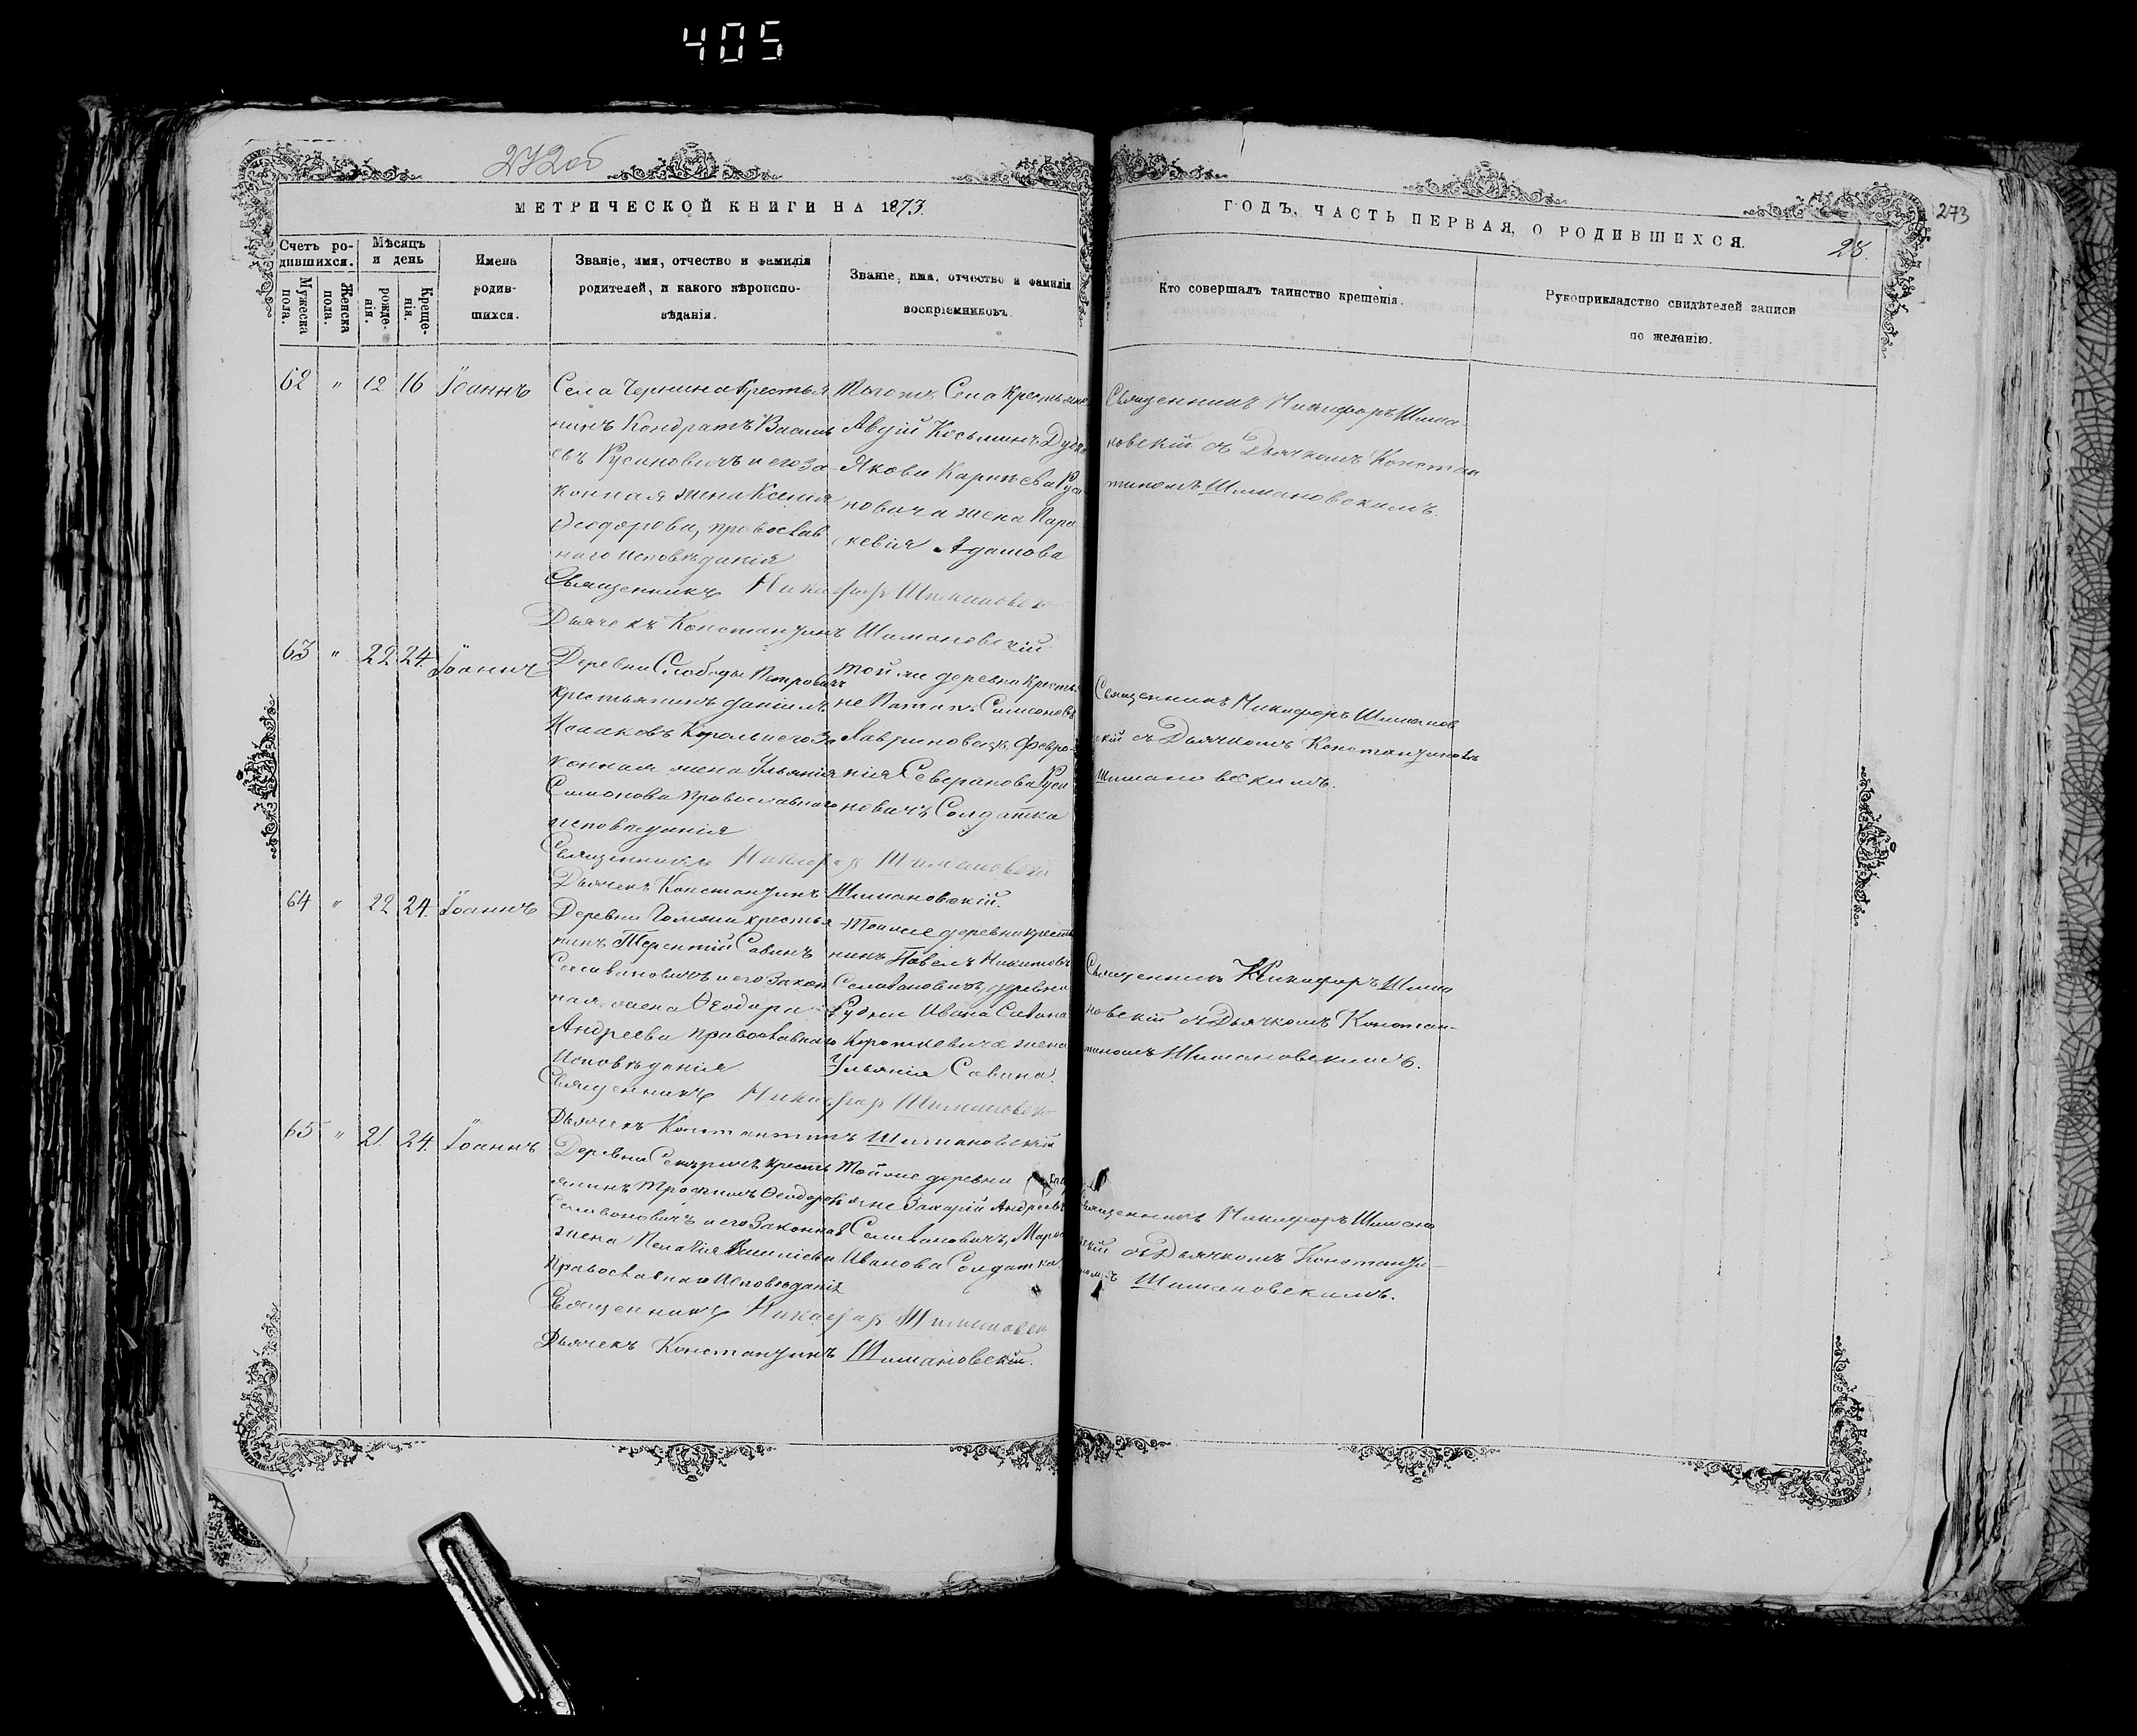 405
272 об
273
28.
МЕТРИЧЕСКОЙ КНИГИ НА 1873.
ГОДЪ, ЧАСТЬ ПЕРВАЯ, О РОДИВШИХСЯ.
Счетъ родившихся.
Мужеска пола.
Женска пола.
Мѣсяцъ и день
рожденія.
Крещенія.
Имена родившихся.
Званіе, имя, отчество и фамилія родителей, и какого вѣроисповѣданія.
Званіе, имя, отчество и фамилія воспріемниковъ.
Кто совершалъ таинство крещенія.
Рукоприкладство свидѣтелей записи по желанію.
62 " 12 16 Іоаннъ
Села Чернина Крестья
нинъ Кондратъ Василь
евъ Русиновичъ и его за-
конная жена Ксения
Ѳеодорова, православ
наго исповѣданія
Тогожъ Села крестьяне
Авдій Косьминъ
Якова
новича жена Пара
кевія Адамова
Священникъ Никифоръ Шимано
новскій съ Дьячкомъ Констан
тиномъ Шимановскимъ.
Священникъ Никифоръ Шимановск
Дьячекъ Константинъ Шимановскій
63 " 22 24. Іоаннъ
Деревни Слободы Петровичъ
крестьянинъ Данилъ
Король и его за
конная жена Ульянія
Симонова Православнаго
исповѣданія
той же деревни Кресть
не Симеоновъ
Февро-
нія Северинова Руси
новичъ Солдатка
Священникъ Никифоръ Шиманов
скій съ Дьячкомъ Константиномъ
Шимановскимъ.
Священникъ Никифоръ Шимановск
Дьячекъ Константинъ Шимановскій.
64 " 22 24. Іоаннъ
Деревни крестья
нинъ Терентій Савинъ
Селивановичъ и его закон
ная жена Ѳеодора
Андреева православнаго
Исповѣданія
Тойже деревни крестья
нинъ Павелъ Никитовъ
Селивановичъ, деревни
Рудни Ивана Савина
Короткевича жена
Ульянія Савина.
Священникъ Никифоръ Шима
новскій съ Дьячкомъ Констан-
тиномъ Шимановскимъ.
Священникъ Никифоръ Шимановск
Дьячекъ Константинъ Шимановскій
65 " 21. 24. Іоаннъ
Деревни Секеричъ кресть
янинъ Трофимъ Ѳеодоровъ
Селивоновичъ и его Законная
жена Пелагія Василіева
Православнаго Исповѣданія
Тойже деревни
яне Захарій Андреевъ
Селивановичъ,
Иванова Солдатка
Священникъ Никифоръ Шимано
вскій съ Дьячкомъ Константи-
номъ Шимановскимъ.
Священникъ Никифоръ Шимановск
Дьячекъ Константинъ Шимановскій.